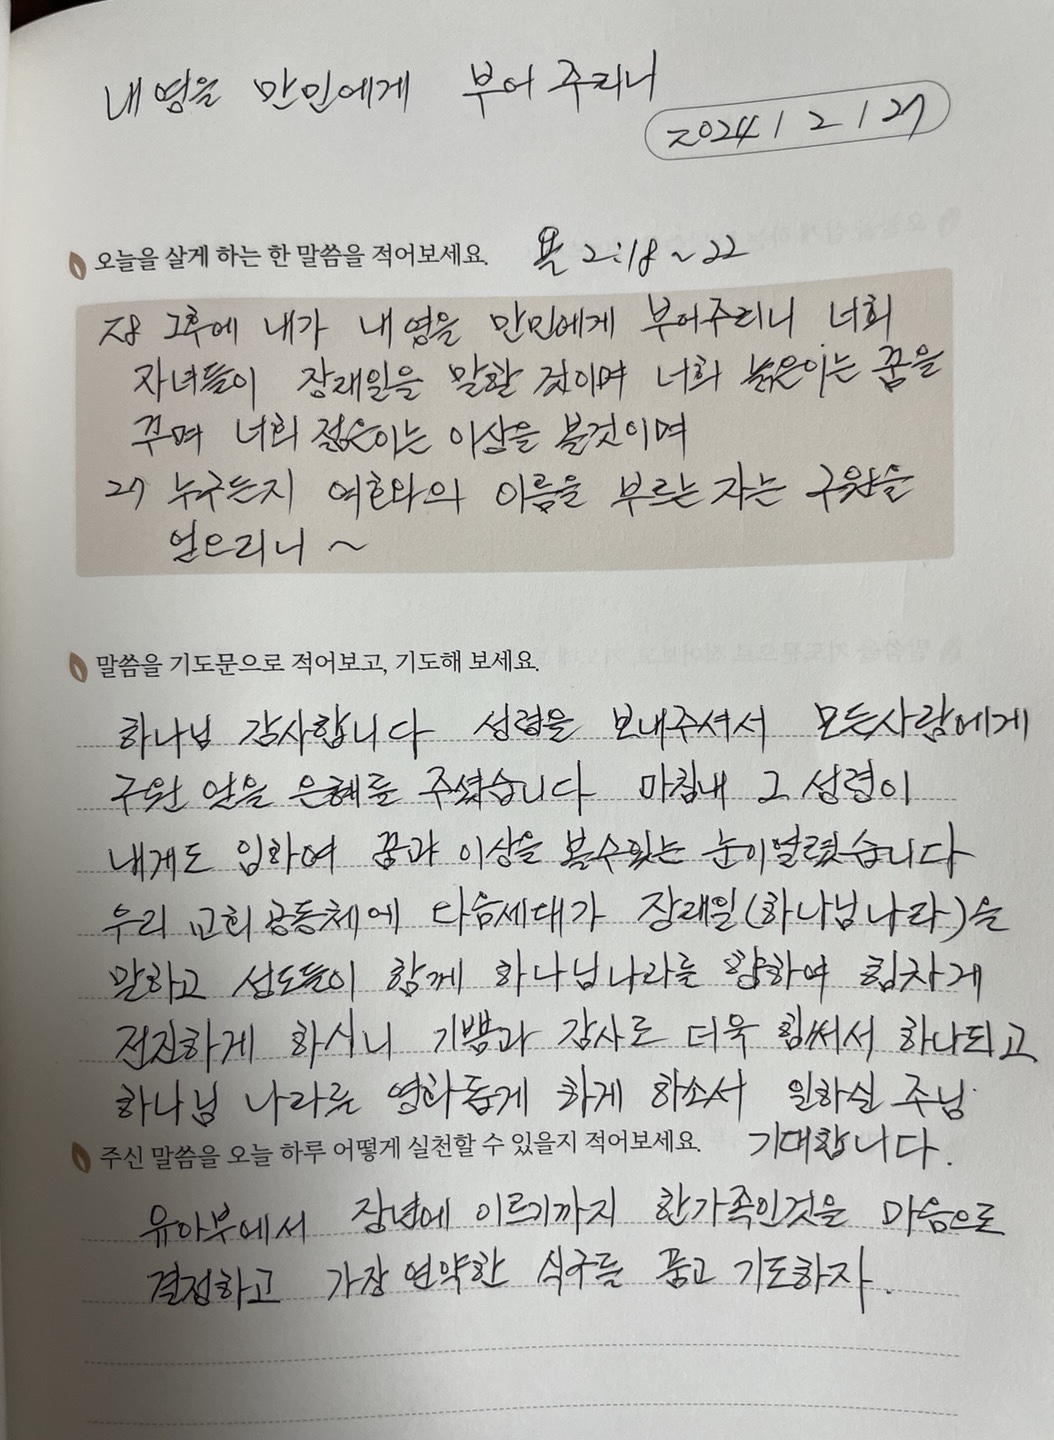 내 영을 만민에게 부어 주리니
2024 / 2 / 27
오늘을 살게 하는 한 말씀을 적어보세요. 욜 2:18~22
28 그후에 내가 내 영을 만민에게 부어주리니 너희
자녀들이 장래일을 말할 것이며 너희 늙은이는 꿈을
꾸며 너희 젊은이는 이상을 볼것이며
27 누구든지 여호와의 이름을 부르는 자는 구원을
얻으리니 ~
말씀을 기도문으로 적어보고, 기도해 보세요.
하나님 감사합니다 성령을 보내주셔서 모든사람에게
구원 얻을 은혜를 주셨습니다 마침내 그 성령이
내게도 임하여 꿈과 이상을 볼수있는 눈이열렸습니다
우리 교회 공동체에 다음세대가 장래일(하나님나라)을
말하고 성도들이 함께 하나님나라를 향하여 힘차게
전진하게 하시니 기쁨과 감사로 더욱 힘써서 하나되고
하나님 나라를 영화롭게 하게 하소서 일하실 주님
기대합니다.
주신 말씀을 오늘 하루 어떻게 실천할 수 있을지 적어보세요.
유아부에서 장년에 이르기까지 한가족인것을 마음으로
결정하고 가장 연약한 식구를 품고 기도하자.